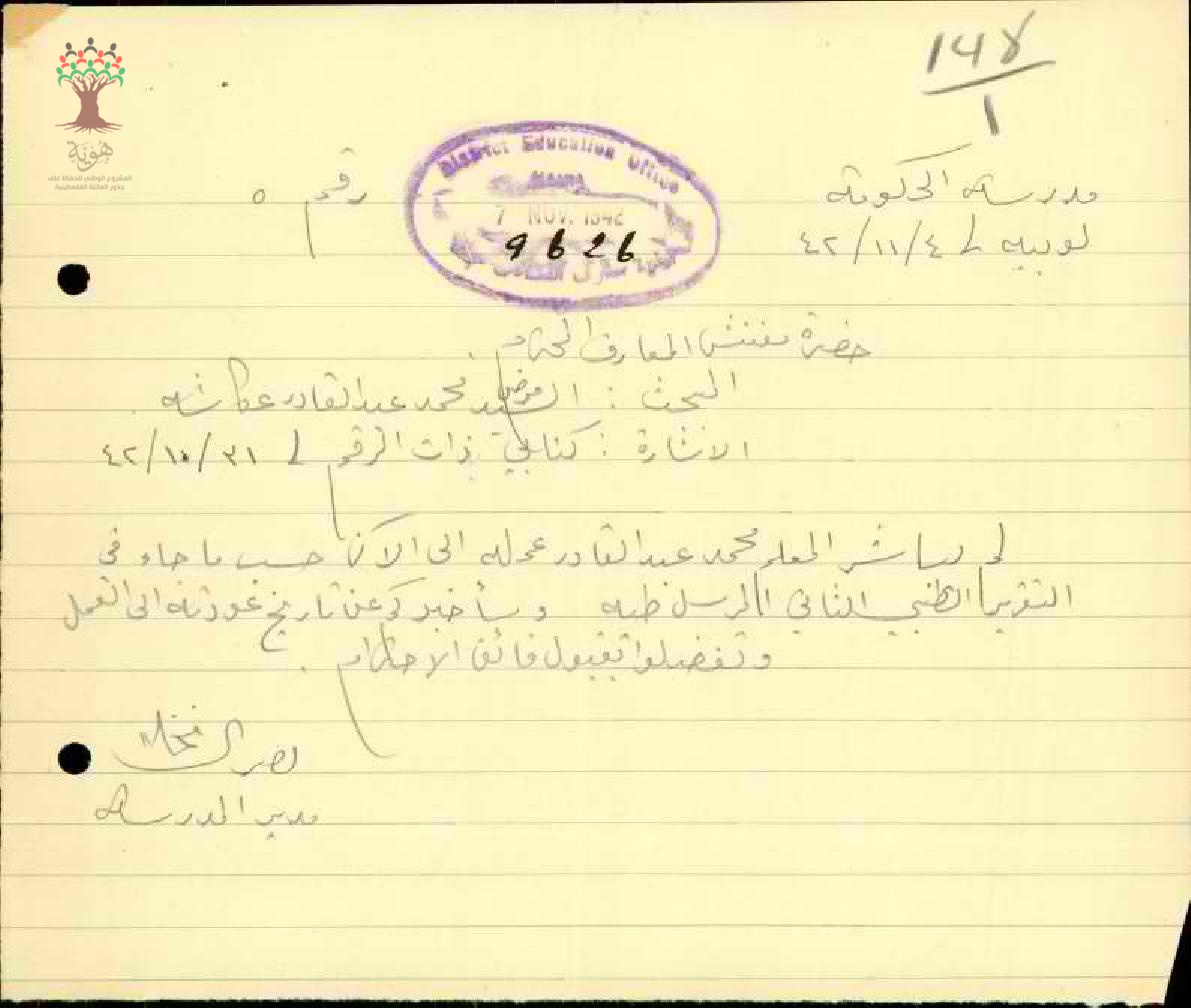 ١٤٨
١
هوية
المشروع الوطني للحفاظ على
جذور العائلة الفلسطينية
District Education Office
7 NOV. 1942
9626
مدرسة الحكومة
رقم ٥
لوبيه في ٤/١١/٤٢
حضرة مفتش المعارف المحترم .
البحث : مرض السيد محمد عبد القادر عكاشه .
الاشارة : كتابي ذات الرقم في ٣١/١٠/٤٢
لم يباشر المعلم محمد عبد القادر عمله الى الآن حسب ما جاء في
التقرير الطبي الثاني المرسل طيه وسأخبركم عن تاريخ عودته الى العمل
وتفضلوا بقبول فائق الاحترام .
مدير المدرسة